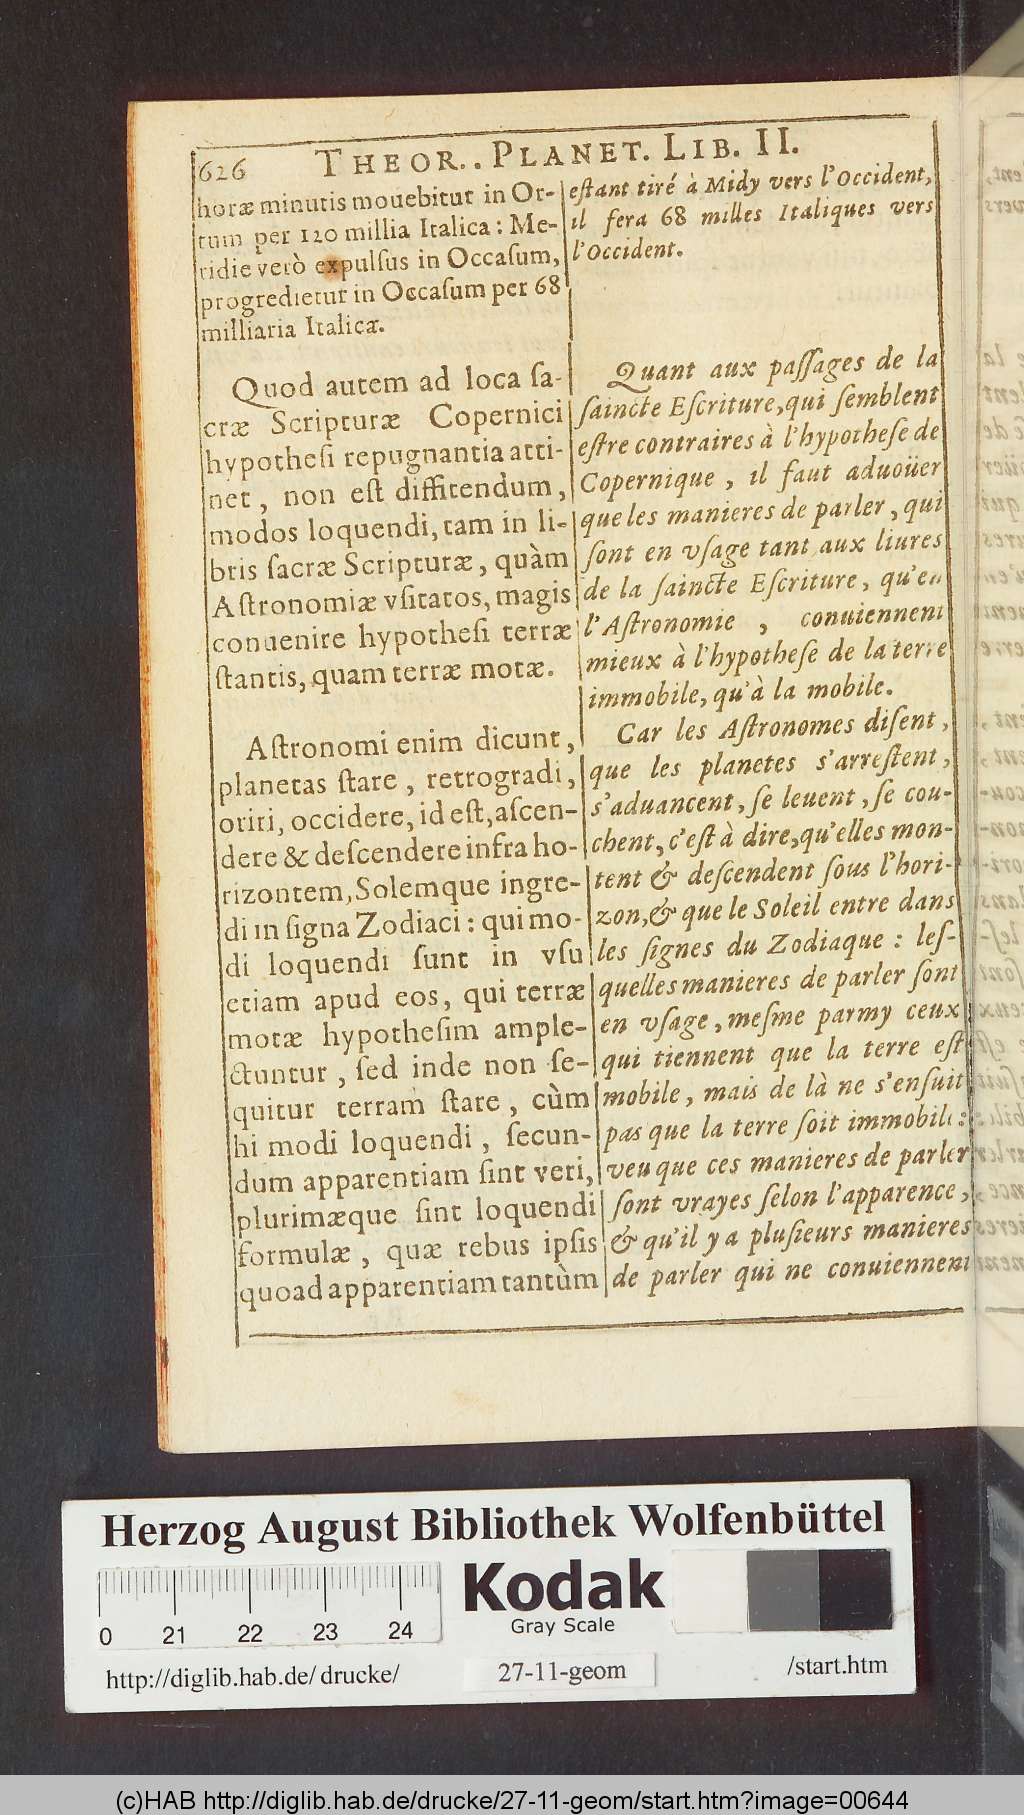 626 THEOR.. PLANET. LIB. II.
horæ minutis mouebitur in Or-
tum per 120 millia Italica: Me-
ridie verò expulſus in Occaſum,
progredietur in Occaſum per 68
milliaria Italicæ.
Quod autem ad loca ſa-
cræ Scripturæ Copernici
hypotheſi repugnantia atti-
net, non eſt diffitendum,
modos loquendi, tam in li-
bris ſacræ Scripturæ, quàm
Aſtronomiæ vſitatos, magis
conuenire hypotheſi terræ
ſtantis, quam terræ motæ.
Aſtronomi enim dicunt,
planetas ſtare, retrogradi,
oriri, occidere, id eſt, aſcen-
dere & deſcendere infra ho-
rizontem, Solemque ingre-
di in ſigna Zodiaci: qui mo-
di loquendi ſunt in vſu
etiam apud eos, qui terræ
motæ hypotheſim ample-
ctuntur, ſed inde non ſe-
quitur terram ſtare, cùm
hi modi loquendi, ſecun-
dum apparentiam ſint veri,
plurimæque ſint loquendi
formulæ, quæ rebus ipſis
quoad apparentiam tantùm
eſtant tiré à Midy vers l'Occident,
il fera 68 milles Italiques vers
l'Occident.
Quant aux paſſages de la
ſaincte Eſcriture, qui ſemblent
eſtre contraires à l'hypotheſe de
Copernique, il faut aduoüer
que les manieres de parler, qui
ſont en vſage tant aux liures
de la ſaincte Eſcriture, qu'en
l'Aſtronomie, conuiennent
mieux à l'hypotheſe de la terre
immobile, qu'à la mobile.
Car les Aſtronomes diſent,
que les planetes s'arreſtent,
s'aduancent, ſe leuent, ſe cou-
chent, c'eſt à dire, qu'elles mon-
tent & deſcendent ſous l'hori-
zon, & que le Soleil entre dans
les ſignes du Zodiaque: leſ-
quelles manieres de parler ſont
en vſage, meſme parmy ceux
qui tiennent que la terre eſt
mobile, mais de là ne s'enſuit
pas que la terre ſoit immobile:
veu que ces manieres de parler
ſont vrayes ſelon l'apparence,
& qu'il y a pluſieurs manieres
de parler qui ne conuiennent
Herzog August Bibliothek Wolfenbüttel
Kodak
Gray Scale
0 21 22 23 24
http://diglib.hab.de/ drucke/ 27-11-geom /start.htm
(c)HAB http://diglib.hab.de/drucke/27-11-geom/start.htm?image=00644